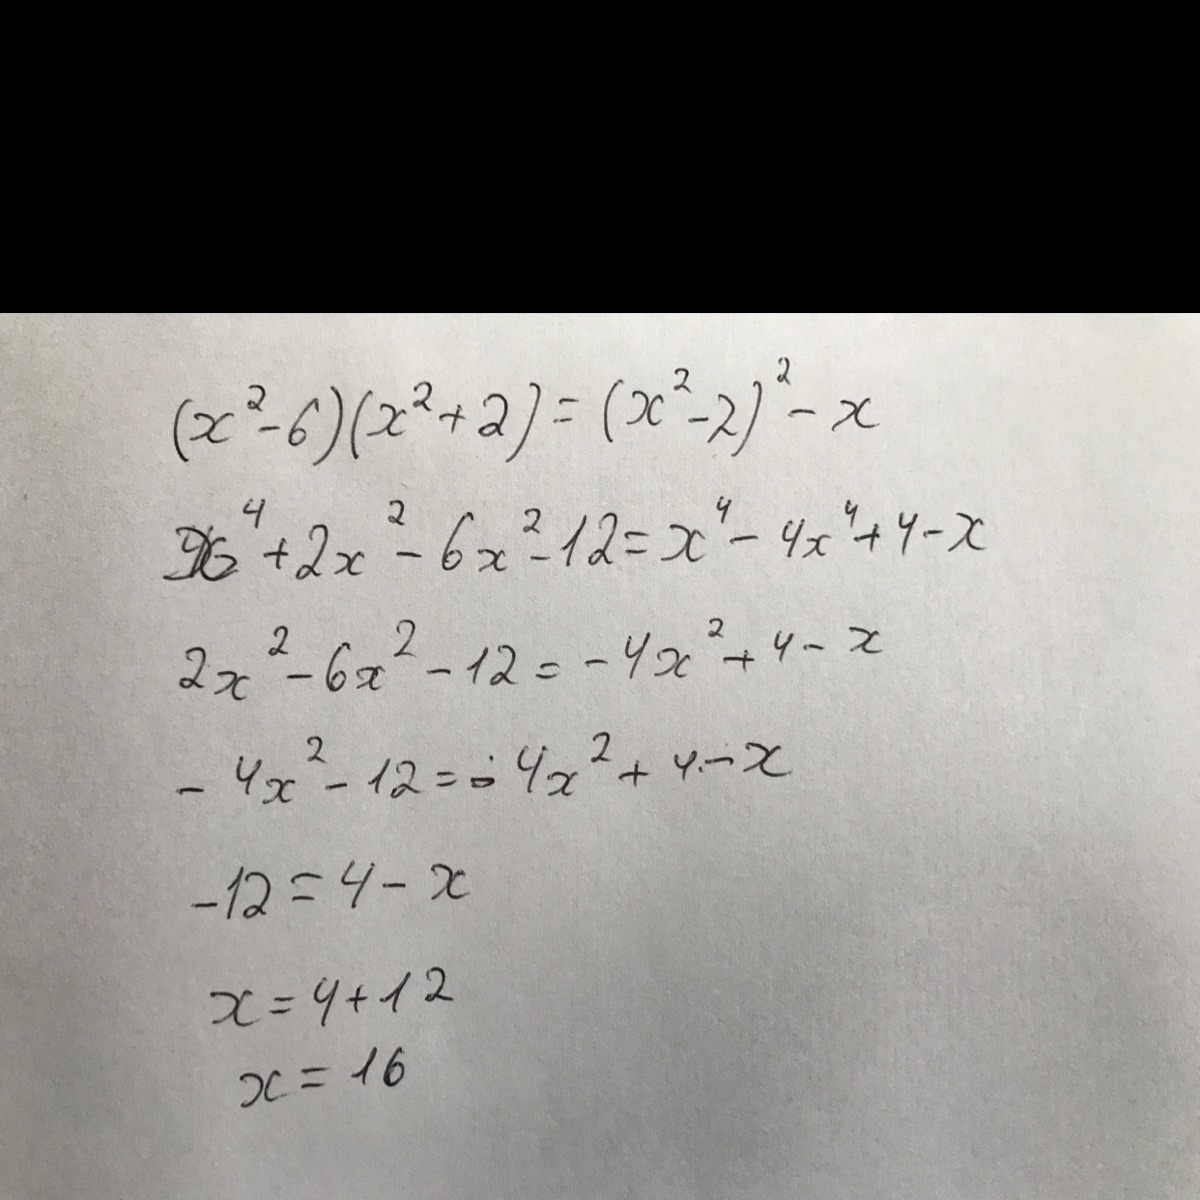 (x²-6)(x²+2)=(x²-2)²-x
x⁴+2x²-6x²-12=x⁴-4x⁴+4-x
2x²-6x²-12=-4x²+4-x
-4x²-12=-4x²+4-x
-12=4-x
x=4+12
x=16